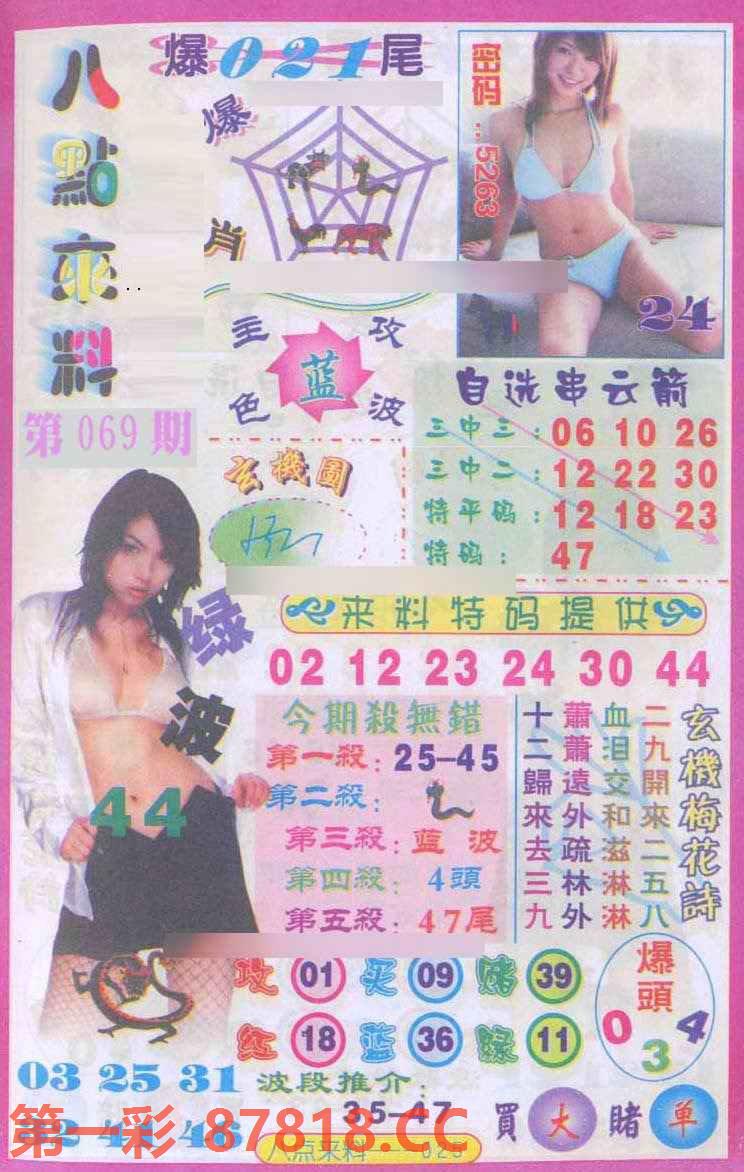 八點來料
爆021尾
爆肖
密码:5263
24
主攻
蓝
色波
第069期
自选串云箭
三中三:06 10 26
三中二:12 22 30
特平码:12 18 23
特码:47
玄機圖
来料特码提供
02 12 23 24 30 44
绿波
44
今期殺無錯
第一殺:25-45
第二殺:
第三殺:蓝波
第四殺:4頭
第五殺:47尾
玄機梅花詩
二九開來二五八
血泪交和滋淋淋
蕭蕭遠外疏林外
十二歸來去三九
攻 01 买 09 赌 39
红 18 蓝 36 绿 11
爆頭
0 3 4
03 25 31
波段推介:
35-47
買大賭單
第一彩 87818.CC
八点来料——025